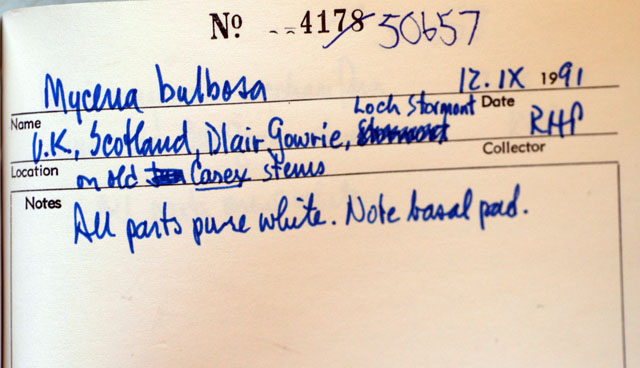 Nº 4178 50657
Mycena bulbosa 12.IX 1991
Name Loch Stormont Date
U.K., Scotland, Blair Gowrie, RHP
Location Collector
on old Carex stems
Notes
All parts pure white. Note basal pad.